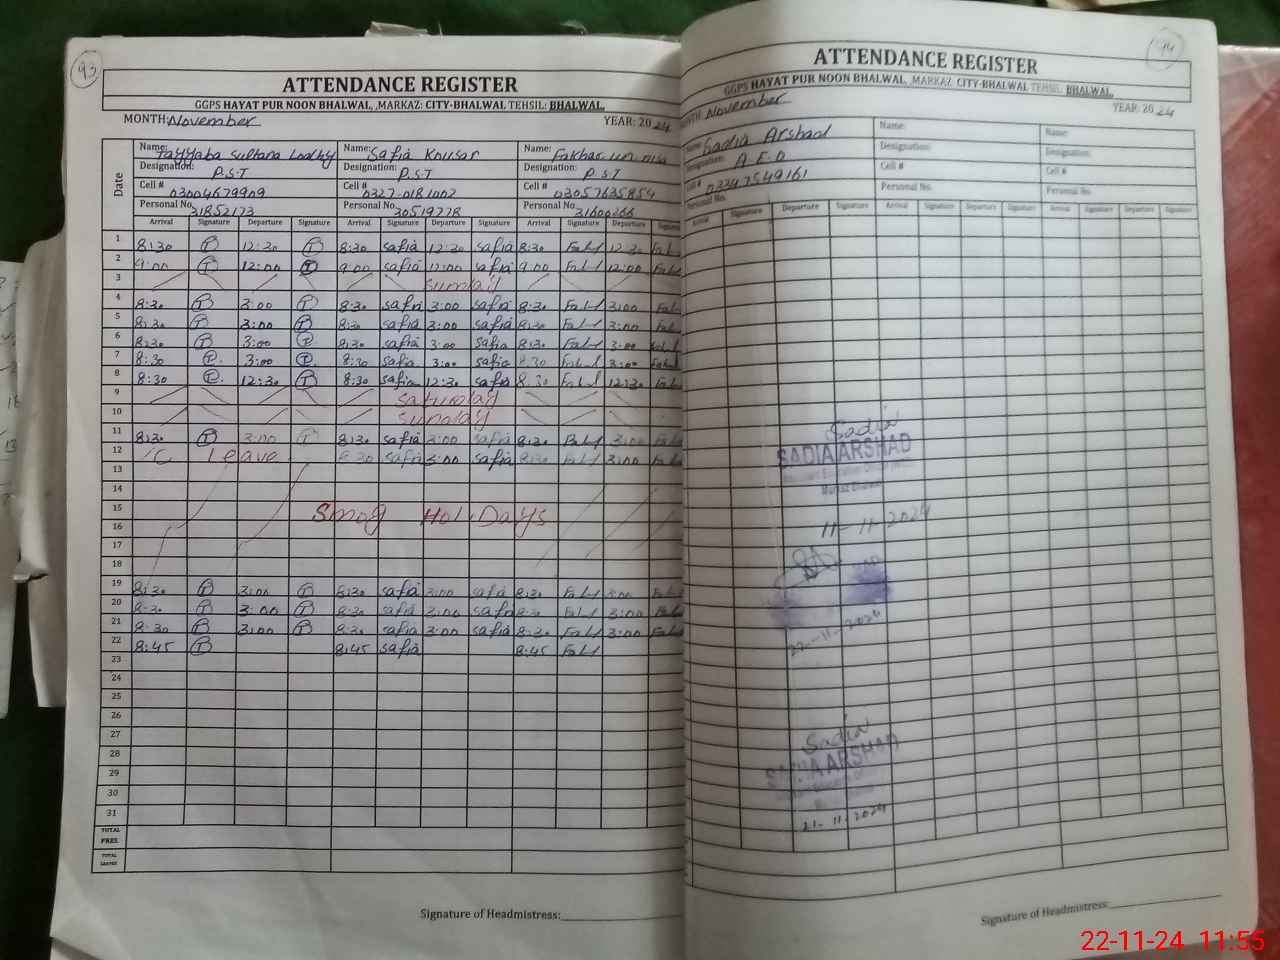 93
ATTENDANCE REGISTER
GGPS HAYAT PUR NOON BHALWAL, ,MARKAZ: CITY-BHALWAL TEHSIL: BHALWAL.
MONTH: November YEAR: 2024
Date
Name: Tayyaba Sultana Lodhy Name: Safia Kousar Name: Fakhar un nisa
Designation: P.S.T Designation: P.S.T Designation: P.S.T
Cell # 03004679909 Cell # 0327-0181002 Cell # 03057635854
Personal No. 31852173 Personal No. 30519778 Personal No. 31600266
Arrival Signature Departure Signature Arrival Signature Departure Signature Arrival Signature Departure Signature
1 8:30 T 12:30 T 8:30 Safia 12:30 Safia 8:30 12:30
2 9:00 T 12:00 T 9:00 Safia 12:00 Safia 9:00 12:00
3 Sunday
4 8:30 T 3:00 T 8:30 Safia 3:00 Safia 8:30 3:00
5 8:30 T 3:00 T 8:30 Safia 3:00 Safia 8:30 3:00
6 8:30 T 3:00 T 8:30 Safia 3:00 Safia 8:30 3:00
7 8:30 T 3:00 T 8:30 Safia 3:00 Safia 8:30 3:00
8 8:30 T 12:30 T 8:30 Safia 12:30 Safia 8:30 12:30
9 Saturday
10 Sunday
11 8:30 T 3:00 T 8:30 Safia 3:00 Safia 8:30 3:00
12 C Leave 8:30 Safia 3:00 Safia 8:30 3:00
13
14
15 Smog HoliDays
16
17
18
19 8:30 T 3:00 T 8:30 Safia 3:00 Safia 8:30 3:00
20 8:30 T 3:00 T 8:30 Safia 3:00 Safia 8:30 3:00
21 8:30 T 3:00 T 8:30 Safia 3:00 Safia 8:30 3:00
22 8:45 T 8:45 Safia 8:45
23
24
25
26
27
28
29
30
31
TOTAL PRES.
TOTAL LEAVES
Signature of Headmistress:
94
ATTENDANCE REGISTER
GGPS HAYAT PUR NOON BHALWAL, ,MARKAZ: CITY-BHALWAL TEHSIL: BHALWAL.
MONTH: November YEAR: 2024
Name: Sadia Arshad Name: Name:
Designation: A.E.O Designation: Designation:
Cell # 03347549161 Cell # Cell #
Personal No. Personal No. Personal No.
Arrival Signature Departure Signature Arrival Signature Departure Signature Arrival Signature Departure Signature
Sadia
SADIA ARSHAD
11-11-2024
22-11-2024
Sadia
SADIA ARSHAD
21-11-2024
Signature of Headmistress:
22-11-24 11:55